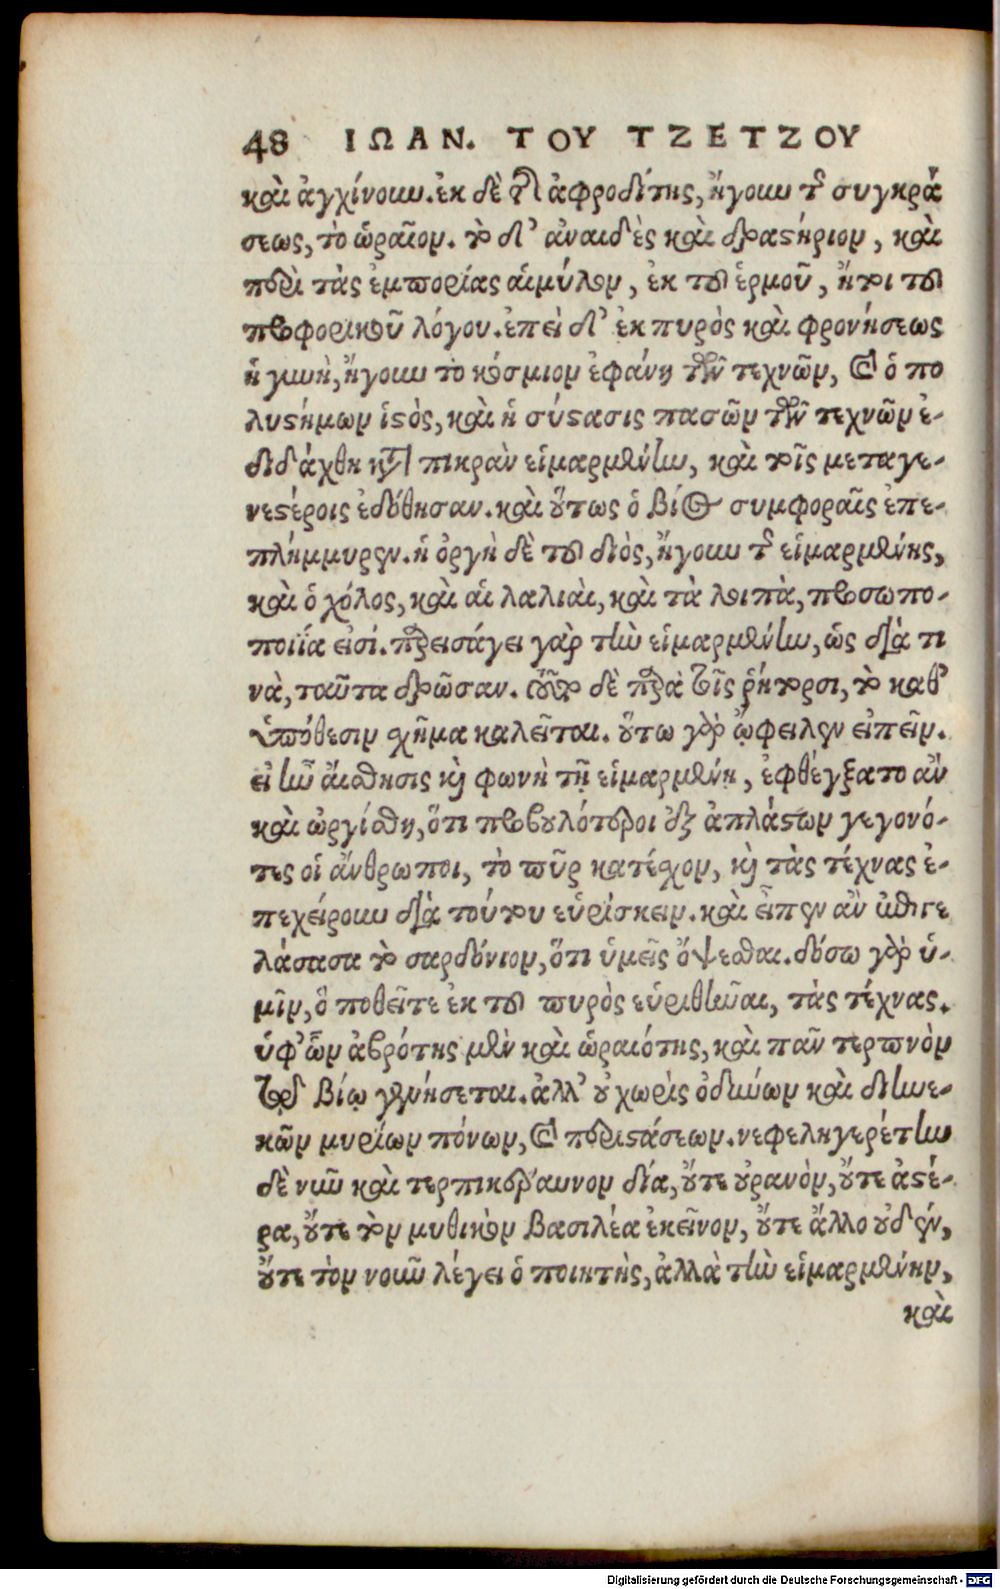 48 ΙΩΑΝ. ΤΟΥ ΤΖΕΤΖΟΥ
καὶ ἀγχίνουν. ἐκ δὲ τῆς ἀφροδίτης, ἤγουν τῆς συγκρά
σεως, τὸ ὡραῖον. τὸ δ' ἀναιδὲς καὶ δραστήριον, καὶ
περὶ τὰς ἐμπορίας αἱμύλον, ἐκ τοῦ ἑρμοῦ, ἤτοι τοῦ
προφορικοῦ λόγου. ἐπεὶ δ' ἐκ πυρὸς καὶ φρονήσεως
ἡ γυνὴ, ἤγουν τὸ κόσμιον ἐφάνη τῶν τεχνῶν, καὶ ὁ πο
λυστήμων ἱστὸς, καὶ ἡ σύστασις πασῶν τῶν τεχνῶν ἐ-
διδάχθη κατὰ πικρὰν εἱμαρμένην, καὶ τοῖς μεταγε-
νεστέροις ἐδόθησαν. καὶ οὕτως ὁ βίος συμφοραῖς ἐπε-
πλήμμυρεν. ἡ ὀργὴ δὲ τοῦ διὸς, ἤγουν τῆς εἱμαρμένης,
καὶ ὁ χόλος, καὶ αἱ λαλιαὶ, καὶ τὰ λοιπὰ, προσωπο-
ποιΐα εἰσί. παρεισάγει γὰρ τὴν εἱμαρμένην, ὡς διά τι
νὰ, ταῦτα δρῶσαν. τοῦτο δὲ παρὰ τοῖς ῥήτορσι, τὸ καθ'
ὑπόθεσιν σχῆμα καλεῖται. οὕτω γὰρ ὤφειλεν εἰπεῖν.
εἰ ἦν αἴσθησις καὶ φωνὴ τῇ εἱμαρμένῃ, ἐφθέγξατο ἂν
καὶ ὠργίσθη, ὅτι προβουλότεροι ἐξ ἀπλάστων γεγονό-
τες οἱ ἄνθρωποι, τὸ πῦρ κατέσχον, καὶ τὰς τέχνας ἐ-
πεχείρουν διὰ τούτου εὑρίσκειν. καὶ εἶπεν ἂν ἐπιγε
λάσασα τὸ σαρδόνιον, ὅτι ὑμεῖς ὄψεσθαι. δόσω γὰρ ὑ-
μῖν, ὃ ποθεῖτε ἐκ τοῦ πυρὸς εὑρεθῆναι, τὰς τέχνας.
ὑφ' ὧν ἁβρότης μὲν καὶ ὡραιότης, καὶ πᾶν τερπνὸν
τῷ βίῳ γενήσεται. ἀλλ' οὐ χωρὶς ὀδυνῶν καὶ διηνε-
κῶν μυρίων πόνων, καὶ περιστάσεων. νεφεληγερέτην
δὲ νῦν καὶ τερπικέραυνον δία, οὔτε οὐρανὸν, οὔτε ἀστέ-
ρα, οὔτε τὸν μυθικὸν βασιλέα ἐκεῖνον, οὔτε ἄλλο οὐδὲν,
οὔτε τὸν νοῦν λέγει ὁ ποιητὴς, ἀλλὰ τὴν εἱμαρμένην,
καὶ
Digitalisierung gefördert durch die Deutsche Forschungsgemeinschaft - DFG